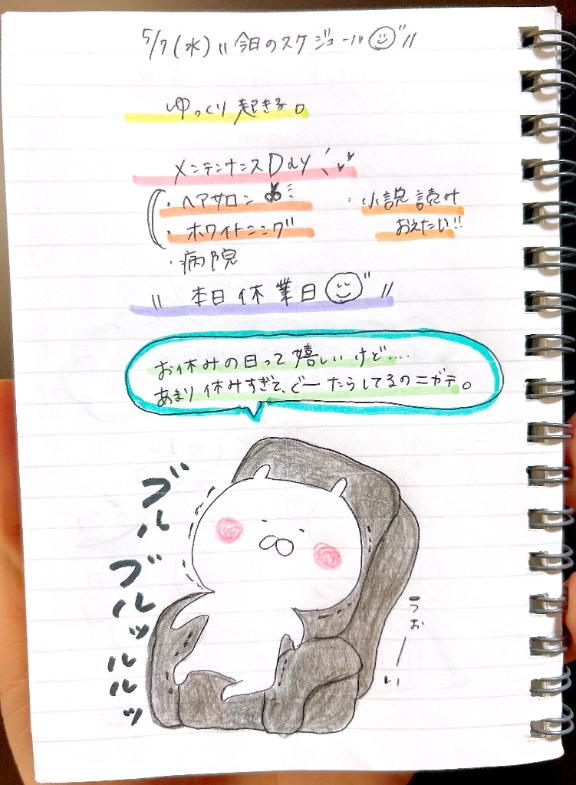 5/7(水) "今日のスケジュール"
ゆっくり起きる。
メンテナンスDay
・ヘアサロン
・ホワイトニング
・病院
・小説読み
おえたい!!
"本日休業日"
お休みの日って嬉しいけど....
あまり休みすぎて、ぐーたらしてるのニガテ。
ブル
ブルッルルッ
うお
ー
い